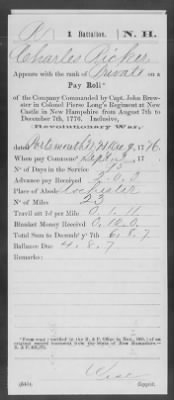 R | 1 Battalion. | N. H.
Charles Ricker
Appears with the rank of Private on a
Pay Roll*
of the Company Commanded by Capt. John Brew-
ster in Colonel Pierse Long's Regiment at New
Castle in New Hampshire from August 7th to
December 7th, 1776. Inclusive,
Revolutionary War,
dated Portsmouth 1776.
When pay Commenc'd Sept 17
N° of Days in the Service
Advance pay Received
Place of Abode Rochester
N° of Miles 23
Travil att 1d per Mile 0.1.11
Blanket Money Received
Total Sum to Decembr y 7th 6.8.7
Ballance Due 4.8.7
Remarks:
Copyist.